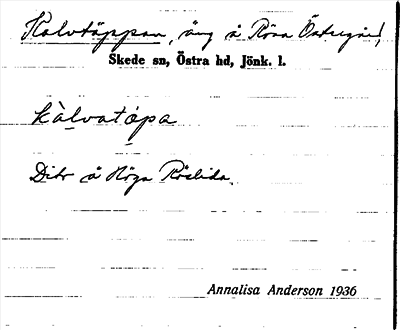 Kalvtäppan, äng å Röra Östregård,
Skede sn, Östra hd, Jönk. l.
kàlvatápa
Dito å Höga Röslida.
Annalisa Anderson 1936